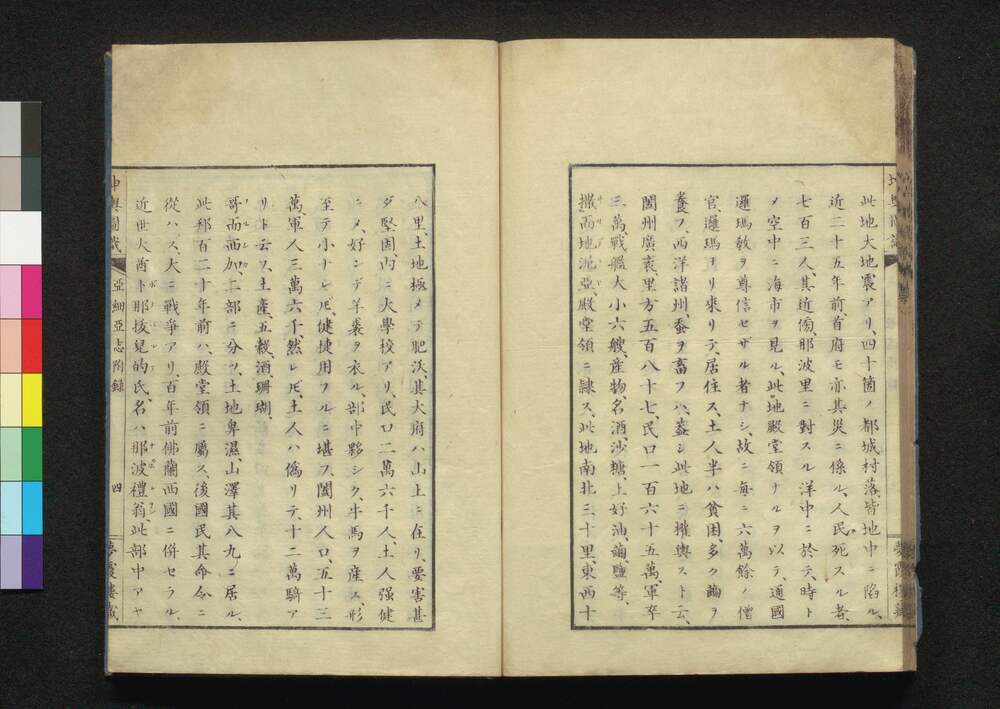 此地大地震アリ、四十箇ノ都城村落皆地中ニ陷ル、
近二十五年前首府モ亦其災ニ係ル、人民死スル者、
七百三人、其近傍、那波里ニ對スル洋中ニ於テ、時ト
メ空中ニ海市ヲ見ル、此地殿堂領ナルヲ以テ、通國
邏瑪敎ヲ尊信セザル者ナシ、故ニ每ニ六萬餘ノ僧
官、邏瑪ヨリ來リテ、居住ス、土人半ハ貧困、多ク
養フ、西洋諸州、蚕ヲ畜フハ、蓋シ此地ニ權輿スト云、
闔州廣袤、里方五百八十七、民口一百六十五萬、軍卒
三萬、戰艦大小六艘、產物、名酒、沙糖、上好油、鹽等、
而地 殿堂領ニ隷ス、此地南北三十里、東西十
八里、土地極メテ肥沃、其大府ハ山上ニ在リ、要害甚
ダ堅固、內ニ大學校アリ、民口二萬六千人、土人强健
ニメ、好ンデ羊裘ヲ衣ル、部中夥シク、牛馬ヲ産ス、形
至テ小ナレ𪜈、健捷用フルニ堪フ、闔州人口、五十三
萬、軍人三萬六千然レ𪜈、土人ハ僞リテ、十二萬騎ア
リト云フ、土產、五穀、酒、珊瑚、
哥而西加、二部ニ分ツ、土地卑濕、山澤其八九ニ居ル、
此邦百二十年前ハ、殿堂領ニ屬ス、後國民其命令ニ
從ハズ、大ニ戰爭アリ、百年前佛蘭西國ニ併セラル、
近世大酋ト那拔兒的氏、名ハ那波禮翁、此部中アヤ
亞細亞志附錄
四
夢霞樓藏